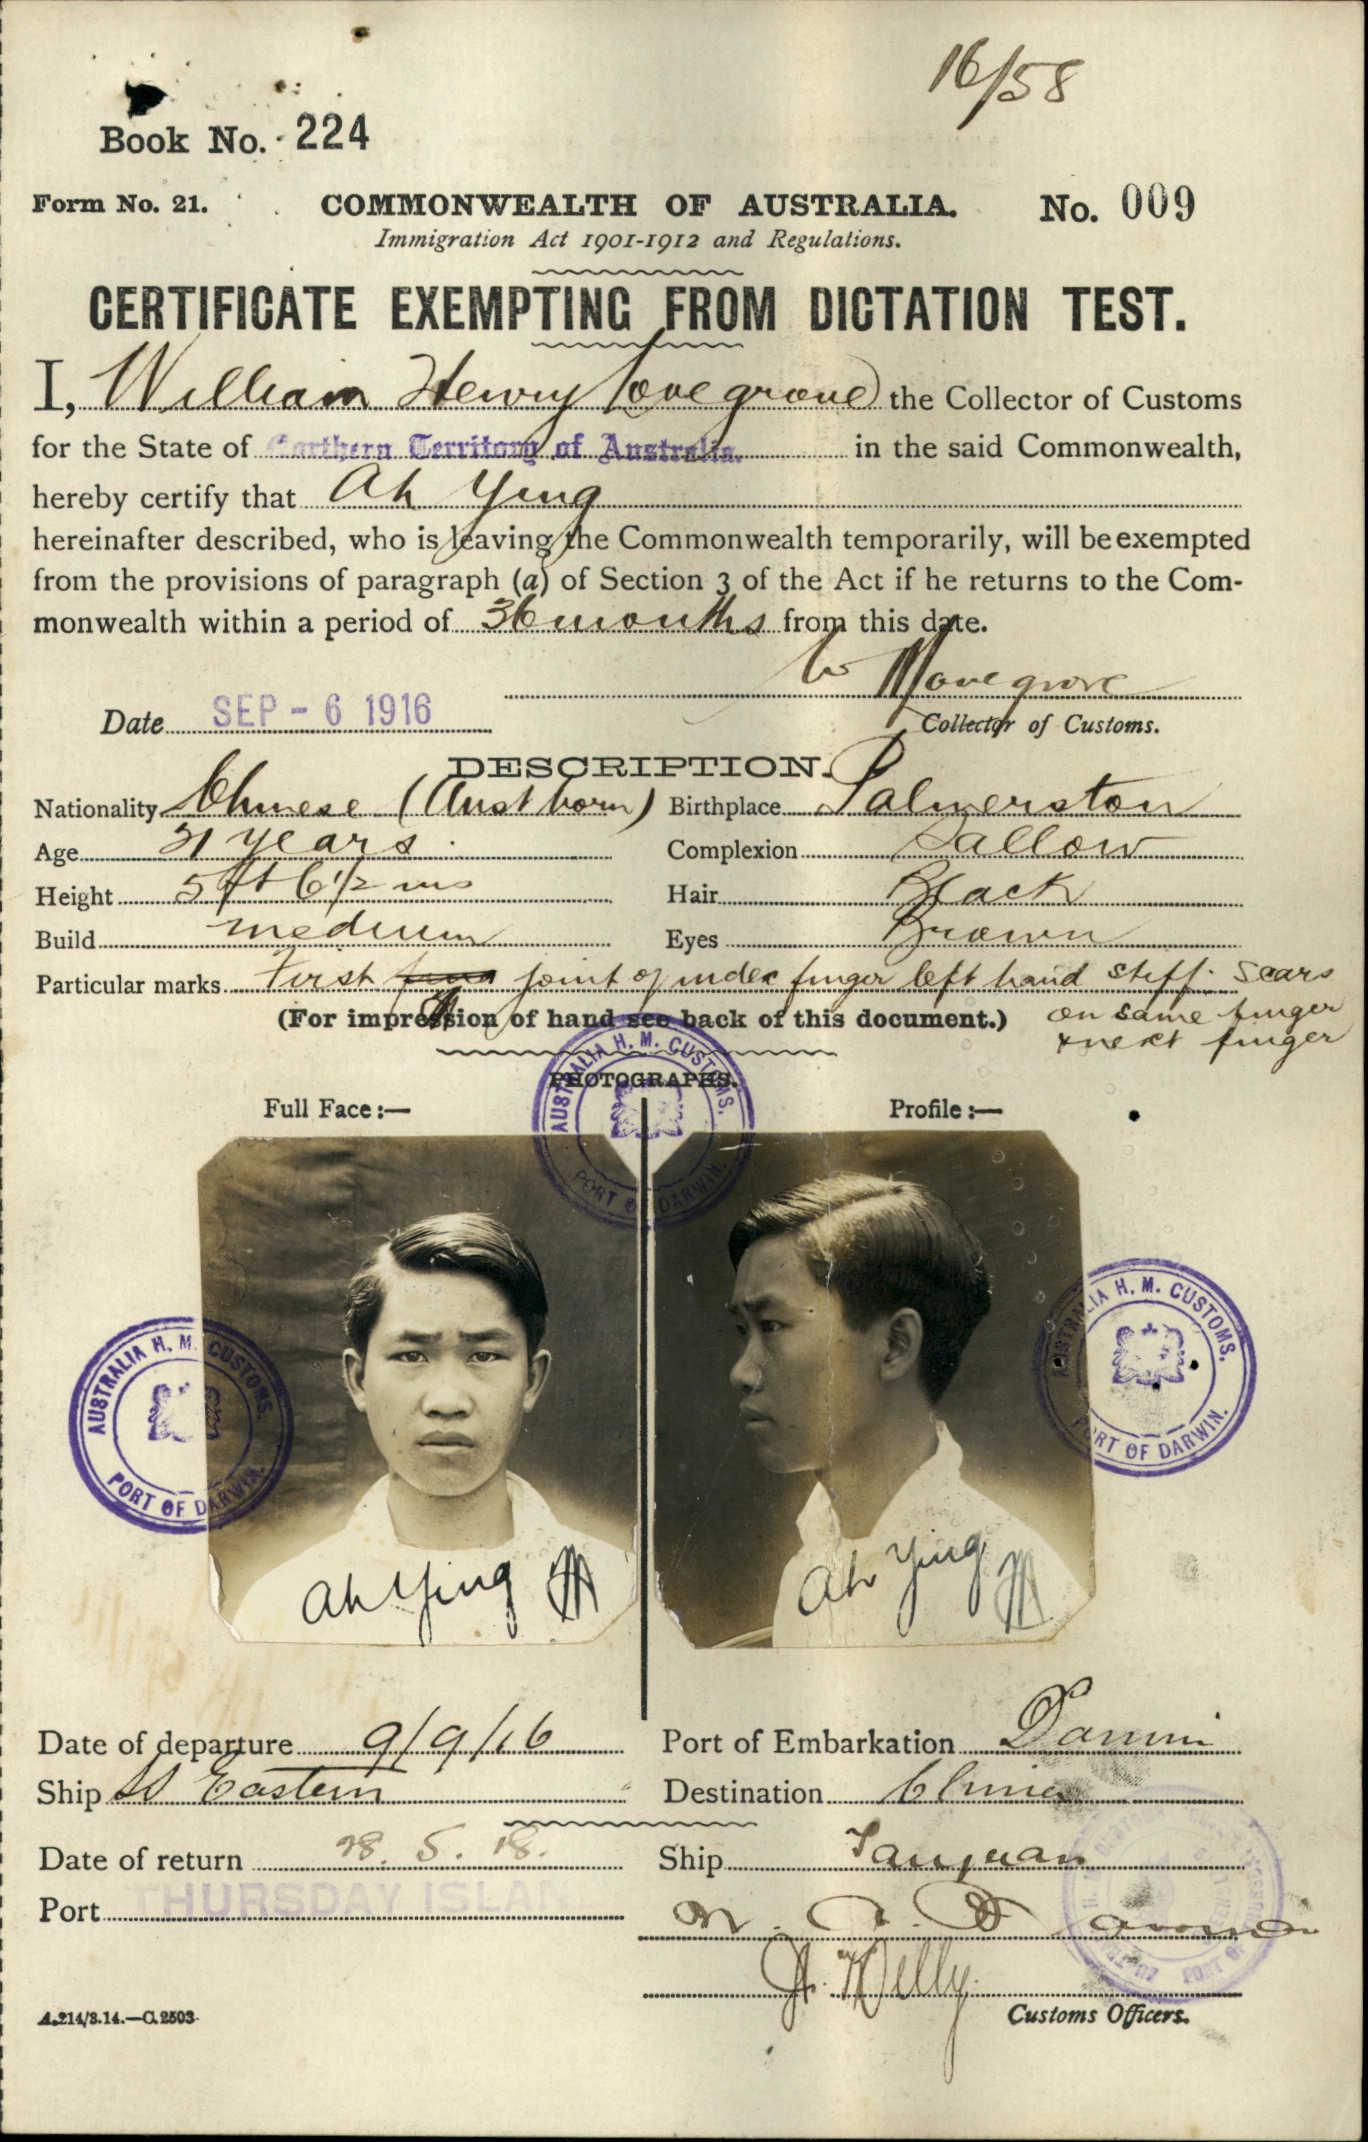 16/58
Book No. 224
Form No. 21. COMMONWEALTH OF AUSTRALIA. No. 009
Immigration Act 1901-1912 and Regulations.
CERTIFICATE EXEMPTING FROM DICTATION TEST.
I, William Henry Lovegrove the Collector of Customs
for the State of Northern Territory of Australia. in the said Commonwealth,
hereby certify that Ah Ying
hereinafter described, who is leaving the Commonwealth temporarily, will be exempted
from the provisions of paragraph (a) of Section 3 of the Act if he returns to the Com-
monwealth within a period of 36 months from this date.
W H Lovegrove
Date SEP - 6 1916 Collector of Customs.
DESCRIPTION.
Nationality Chinese (Aust born) Birthplace Palmerston
Age 21 years Complexion Sallow
Height 5 ft 6 1/2 ins Hair Black
Build medium Eyes Brown
Particular marks First joint of index finger left hand stiff. Scars
on same finger
& next finger
(For impression of hand see back of this document.)
PHOTOGRAPHS.
Full Face:— Profile:—
AUSTRALIA H. M. CUSTOMS. PORT OF DARWIN.
AUSTRALIA H. M. CUSTOMS. PORT OF DARWIN.
AUSTRALIA H. M. CUSTOMS. PORT OF DARWIN.
Ah Ying
Ah Ying
Date of departure 9/9/16 Port of Embarkation Darwin
Ship SS Eastern Destination China
Date of return 28. 5. 18. Ship Taiyuan
Port THURSDAY ISLAN
PORT OF
Customs Officers.
A.214/3.14.—C.2503.